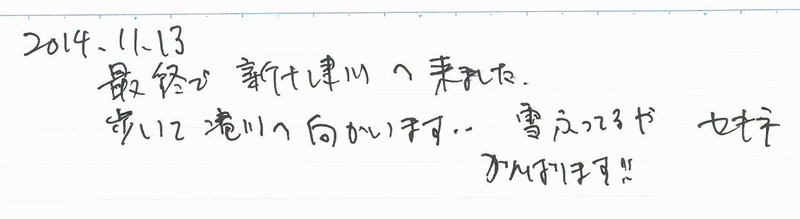 2014.11.13
最終で 新十津川へ来ました.
歩いて滝川へ向かいます.. 雪ふってるや セキネ
がんばります!!